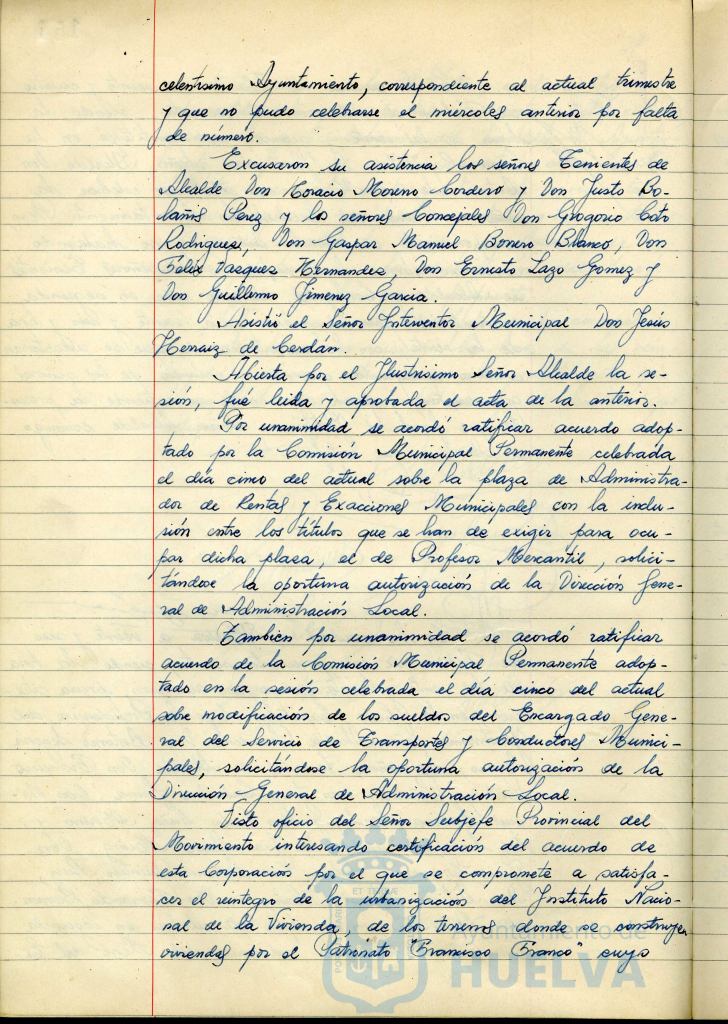 celentisimo Ayuntamiento, correspondiente al actual trimestre
y que no pudo celebrarse el miércoles anterior por falta
de número.
Excusaron su asistencia los señores Tenientes de
Alcalde Don Horacio Moreno Cordero y Don Justo Bo-
lañis Perez y los señores Concejales Don Grogorio Coto
Rodriguez, Don Gaspar Manuel Bonero Blanco, Don
Felix Vasques Hernandez, Don Ernesto Lazo Gomez y
Don Guillermo Jimenez Garcia.
Asistió el Señor Interventor Municipal Don Jesús
Herraiz de Cerdán.
Abierta por el Ilustrisimo Señor Alcalde la se-
sión, fué leida y aprobada el acta de la anterior.
Por unanimidad se acordó ratificar acuerdo adop-
tado por la Comisión Municipal Permanente celebrada
el día cinco del actual sobre la plaza de Administra-
dor de Rentas y Exacciones Municipales con la inclu-
sión entre los títulos que se han de exigir para ocu-
par dicha plaza, el de Profesor Mercantil, solici-
tándose la oportuna autorización de la Dirección Gene-
ral de Administración Local.
Tambien por unanimidad se acordó ratificar
acuerdo de la Comisión Municipal Permanente adop-
tado en la sesión celebrada el día cinco del actual
sobre modificación de los sueldos del Encargado Gene-
ral del Servicio de Transportes y Conductores Munici-
pales, solicitándose la oportuna autorización de la
Dirección General de Administración Local.
Visto oficio del Señor Subjefe Provincial del
Movimiento interesando certificación del acuerdo de
esta Corporación por el que se compromete a satisfa-
cer el reintegro de la urbanización del Instituto Nacio-
nal de la Vivienda, de los terrenos donde se construyen
viviendas por el Patronato "Francisco Franco" cuyo
Ayuntamiento de
HUELVA